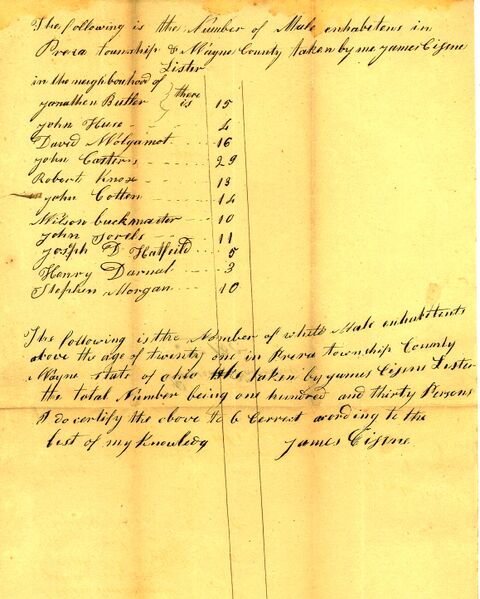 The following is the Number of Male enhabetens in
Prera township & Wayne County taken by me James Cisene
Lister
in the neighbourhood of
Jonathen Butler } there is 15
John Huse 4
David Molgamot 16
John Casters 29
Robert Knox 13
John Cotten 14
Wilson buckmaster 10
John Sorels 11
Joseph D Hatfield 5
Henry Darnal 3
Stephen Morgan 10
The following is the Number of white Male enhabetents
above the age of twenty one in Prera township County
Wayne state of ohio taken by James Cisene Lester
the total Number being one hundred and thirty Persons
I do certify the above to b Correst acording to the
best of my Knowledg James Cisene